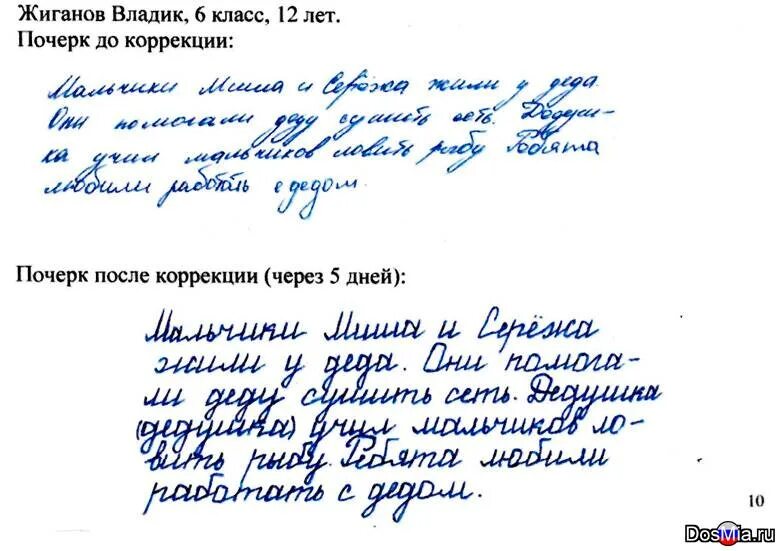 Жиганов Владик, 6 класс, 12 лет.
Почерк до коррекции:
Мальчики Миша и Серёжа жили у деда.
Они помогали деду сушить сеть. Дедуш-
ка учил мальчиков ловить рыбу Ребята
любили работать с дедом.
Почерк после коррекции (через 5 дней):
Мальчики Миша и Серёжа
жили у деда. Они помога-
ли деду сушить сеть. Дедушка
(дедушка) учил мальчиков ло-
вить рыбу. Ребята любили
работать с дедом.
10
DosMia.ru